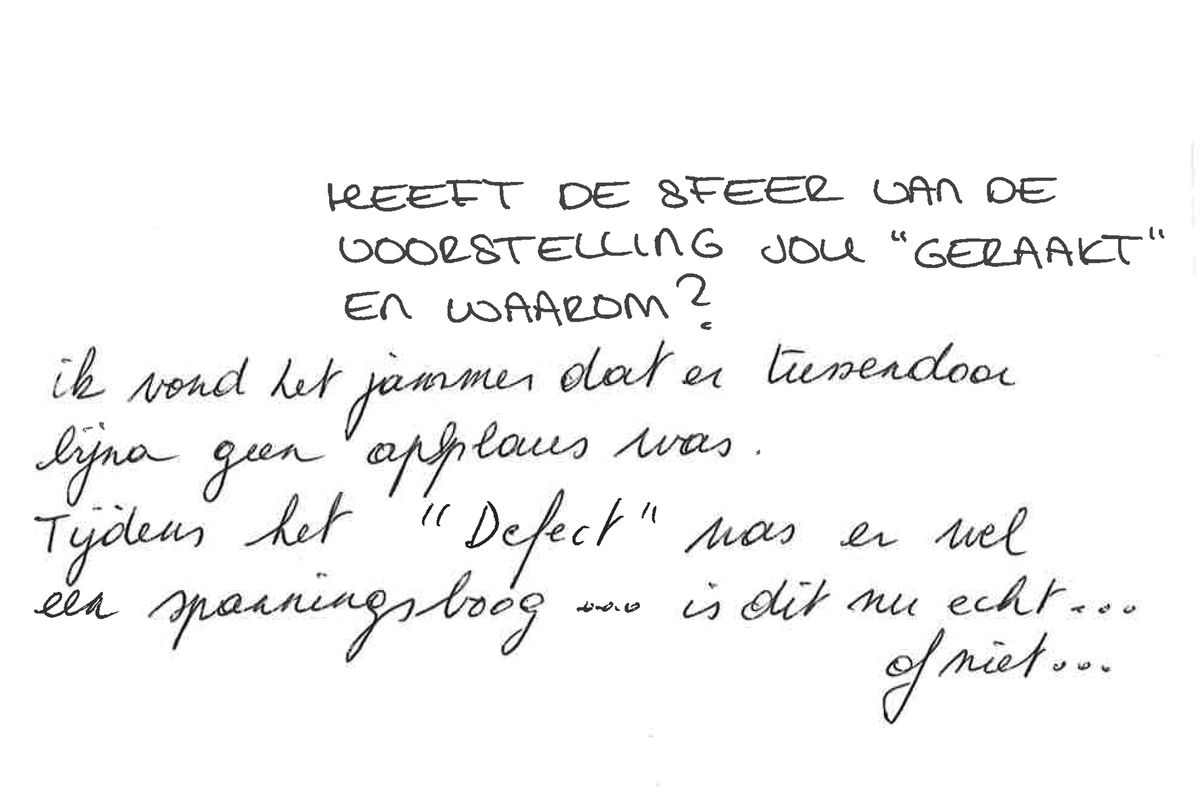 HEEFT DE SFEER VAN DE
VOORSTELLING JOU "GERAAKT"
EN WAAROM?
ik vond het jammer dat er tussendoor
bijna geen applaus was.
Tijdens het "Defect" was er wel
een spanningsboog .... is dit nu echt...
of niet...